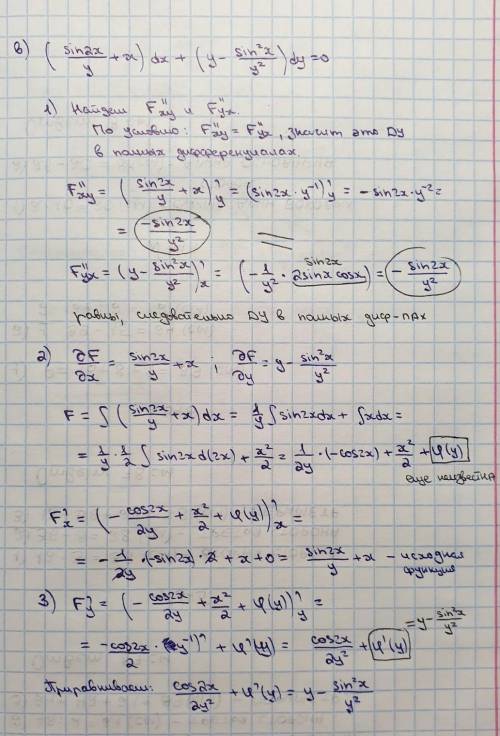 в) (sin2x/y + x) dx + (y - sin²x/y²) dy = 0
1) Найдем F''xy и F''yx.
По условию: F''xy = F''yx, значит это ДУ
в полных дифференциалах.
F''xy = (sin2x/y + x)'y = (sin2x · y⁻¹)'y = -sin2x · y⁻² =
= -sin2x/y²
F''yx = (y - sin²x/y²)'x = (-1/y² · 2sinx cosx) = -sin2x/y²
sin2x
равны, следовательно ДУ в полных диф-лах
2) ∂F/∂x = sin2x/y + x ; ∂F/∂y = y - sin²x/y²
F = ∫ (sin2x/y + x) dx = 1/y ∫ sin2x dx + ∫ x dx =
= 1/y · 1/2 ∫ sin2x d(2x) + x²/2 = 1/2y · (-cos2x) + x²/2 + φ(y)
еще неизвестна
F'x = (-cos2x/2y + x²/2 + φ(y))'x =
= -1/2y · (-sin2x) · 2 + x + 0 = sin2x/y + x - исходная
функция
3) F'y = (-cos2x/2y + x²/2 + φ(y))'y =
= -cos2x/2 · (y⁻¹)' + φ'(y) = cos2x/2y² + φ'(y)
= y - sin²x/y²
Приравниваем: cos2x/2y² + φ'(y) = y - sin²x/y²